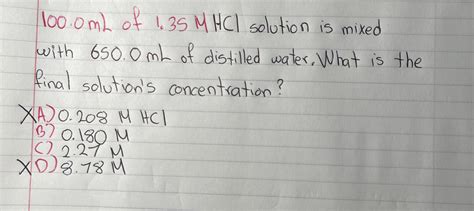 100.0mL of 1.35 M HCl solution is mixed
with 650.0 mL of distilled water. What is the
final solution's concentration?
XA) 0.208 M HCl
B) 0.180 M
C) 2.27 M
XD) 8.78 M